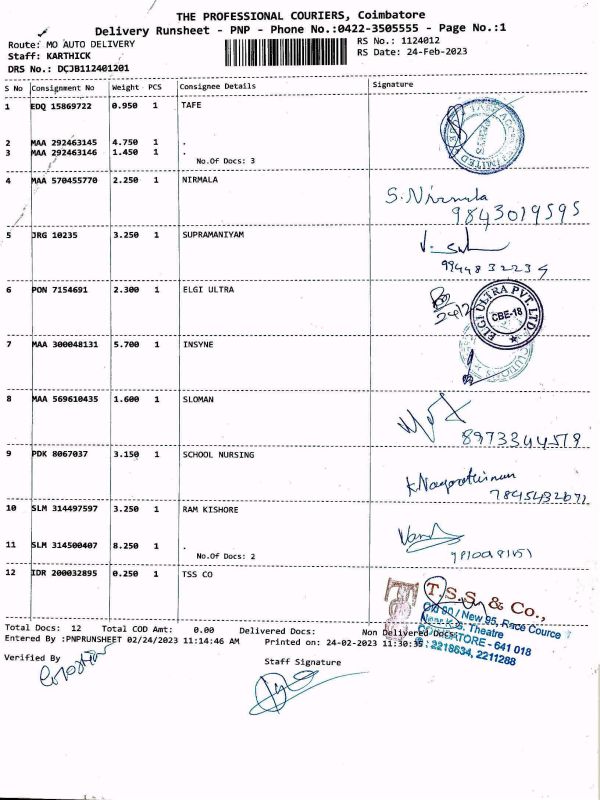 THE PROFESSIONAL COURIERS, Coimbatore
Delivery Runsheet - PNP - Phone No.:0422-3505555 - Page No.:1
Route: MO AUTO DELIVERY RS No.: 1124012
Staff: KARTHICK RS Date: 24-Feb-2023
DRS No.: DCJB112401201
S No Consignment No Weight PCS Consignee Details Signature
1 EDQ 15869722 0.950 1 TAFE
2 MAA 292463145 4.750 1 .
3 MAA 292463146 1.450 1 .
No.Of Docs: 3
4 MAA 570455770 2.250 1 NIRMALA
S. Nirmala
9843019595
5 JRG 10235 3.250 1 SUPRAMANIYAM
9944832234
6 PON 7154691 2.300 1 ELGI ULTRA
24/2
ELGI ULTRA PVT. LTD.
CBE-18
7 MAA 300048131 5.700 1 INSYNE
8 MAA 569610435 1.600 1 SLOMAN
8973344579
9 PDK 8067037 3.150 1 SCHOOL NURSING
7845432071
10 SLM 314497597 3.250 1 RAM KISHORE
11 SLM 314500407 8.250 1 .
No.Of Docs: 2
12 IDR 200032895 0.250 1 TSS CO
T.S.S. & Co.,
Old 90 / New 95, Race Cource
Near K.G. Theatre
COIMBATORE - 641 018
: 2218634, 2211288
Total Docs: 12 Total COD Amt: 0.00 Delivered Docs: Non Delivered Docs:
Entered By :PNPRUNSHEET 02/24/2023 11:14:46 AM Printed on: 24-02-2023 11:30:35
Verified By Staff Signature